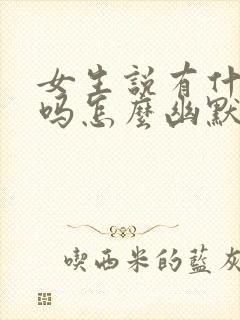 女生說有什
吗怎麼幽默
喫西米的藍灰